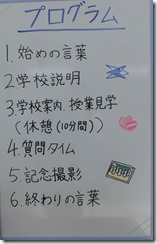 プログラム
1.始めの言葉
2.学校説明
3.学校案内、授業見学
(休憩(10分間))
4.質問タイム
5.記念撮影
6.終わりの言葉